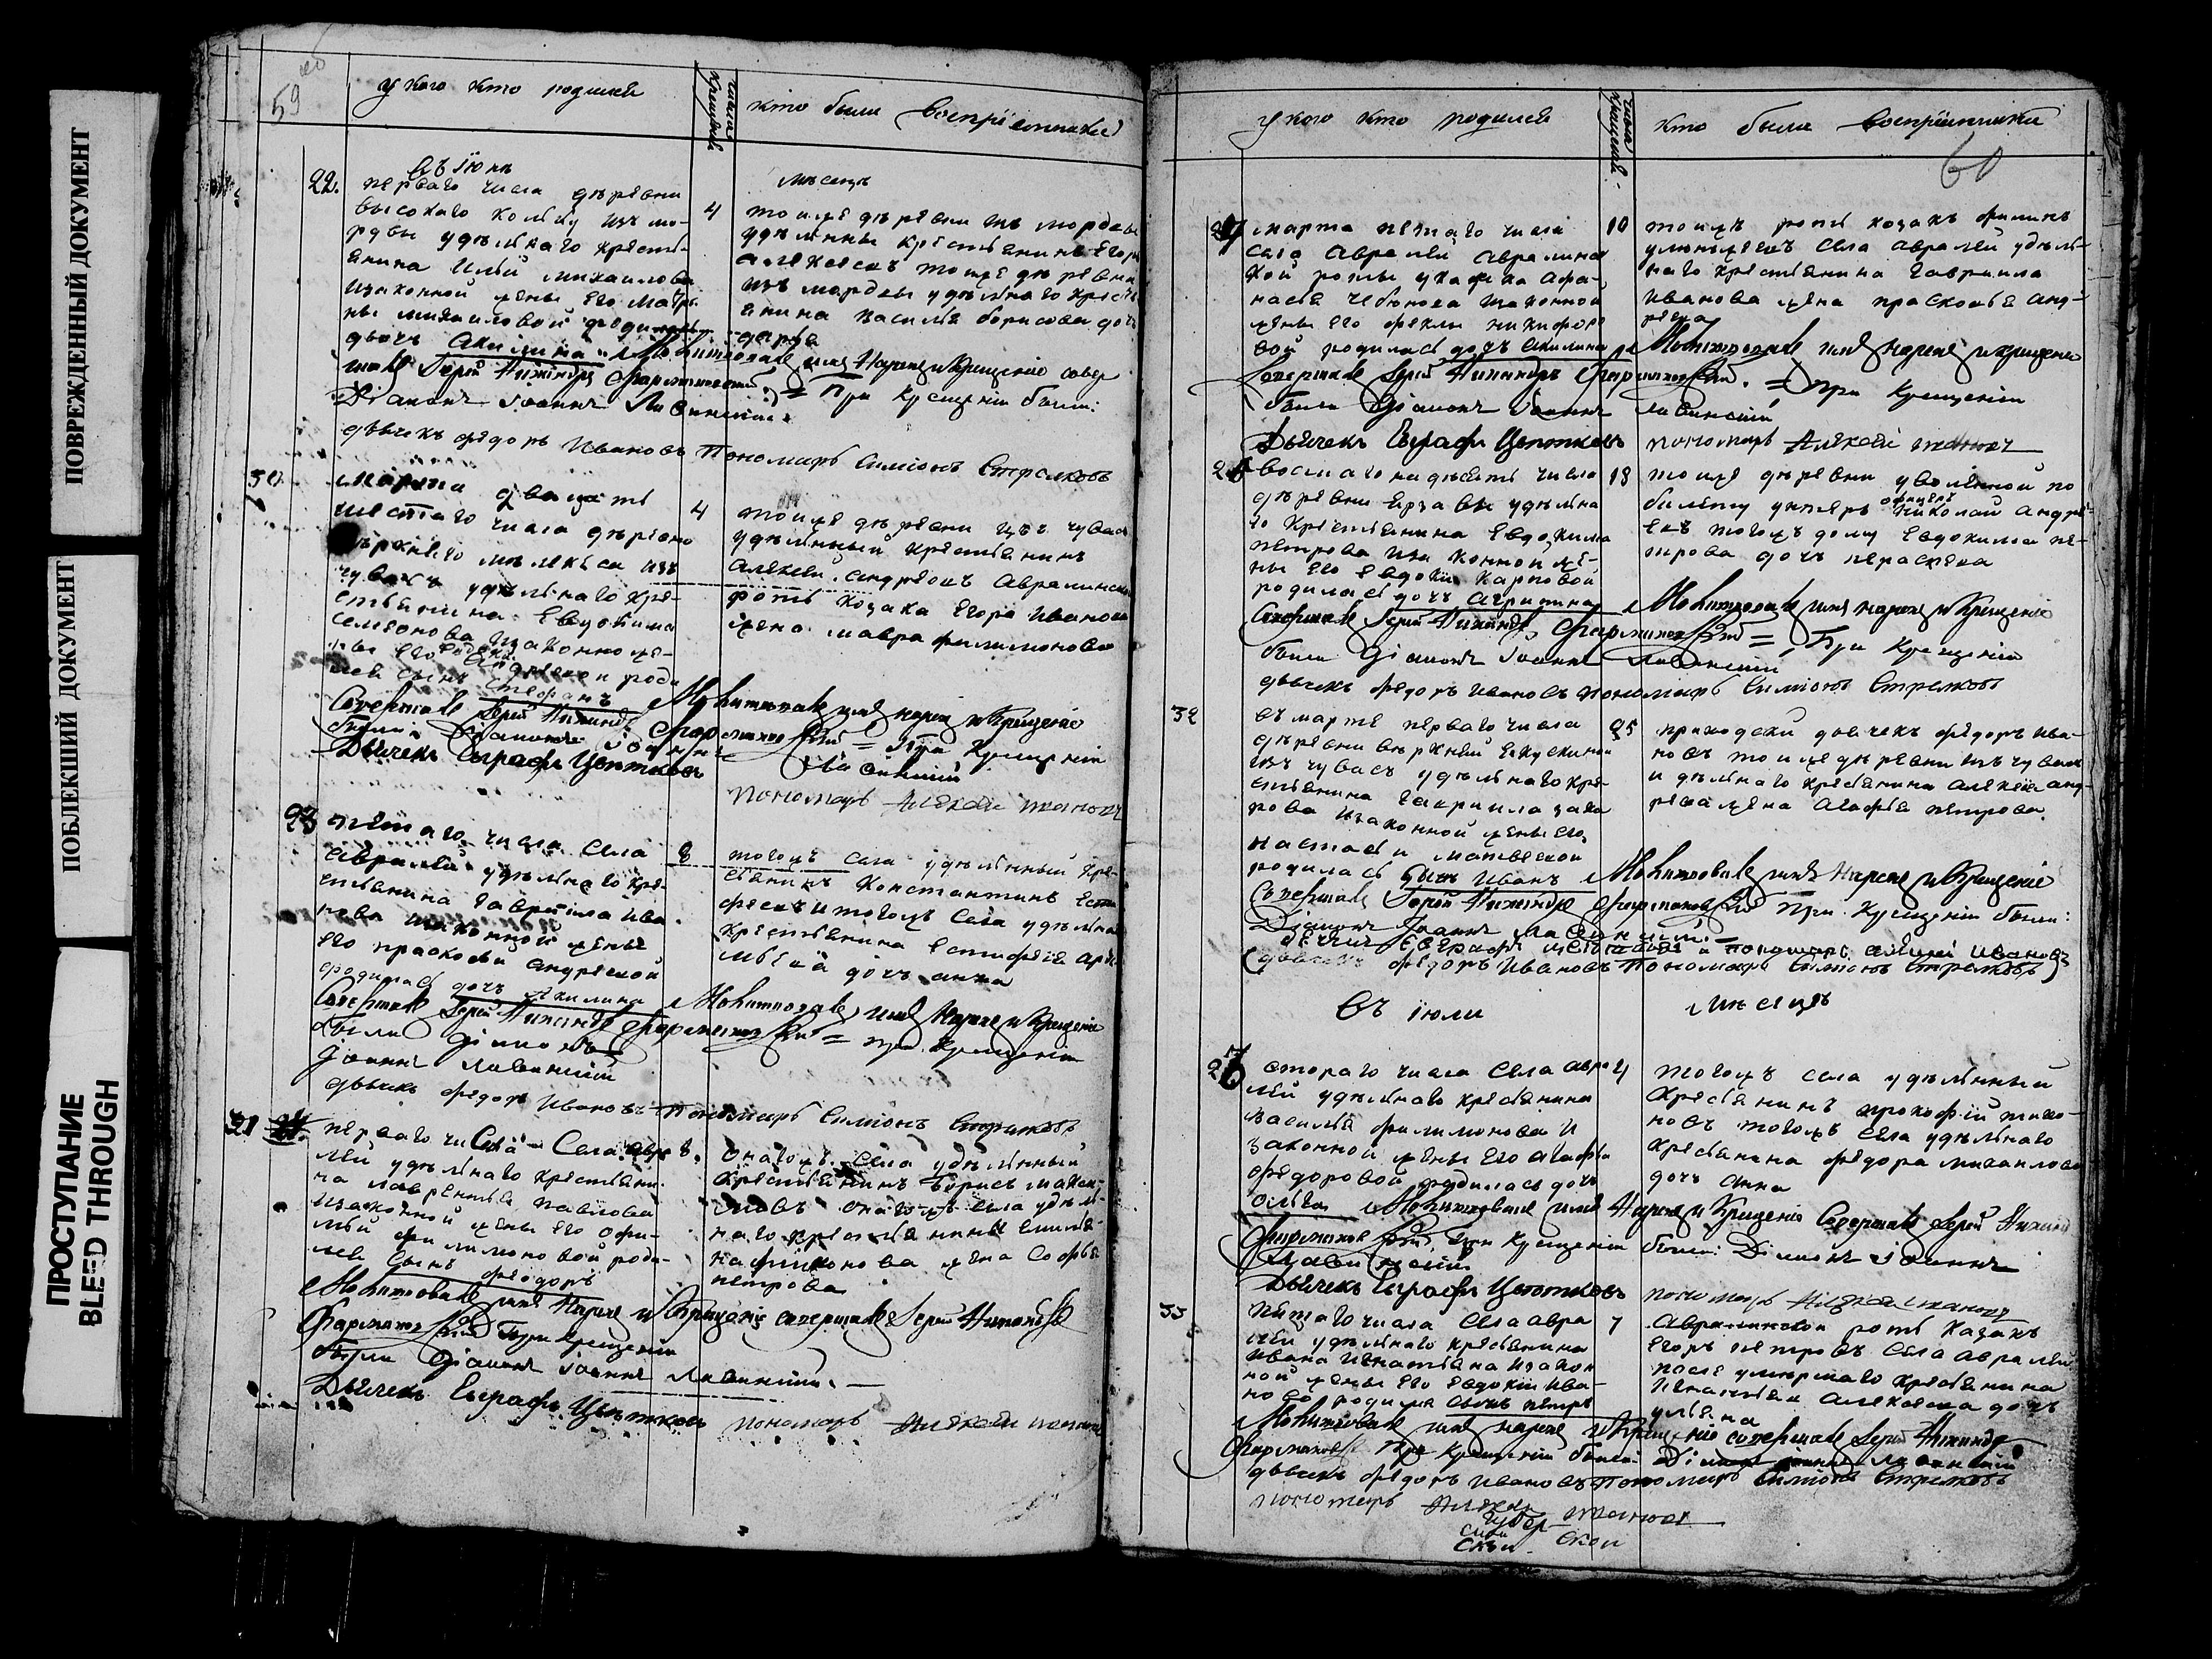 ПОВРЕЖДЕННЫЙ ДОКУМЕНТ
ПОБЛЕКШИЙ ДОКУМЕНТ
ПРОСТУПАНИЕ
BLEED THROUGH
59
у кого кто родился
числа крещенiя
кто были восприемники
22.
въ Iюнѣ
мѣсецѣ
перваго числа деревни
высокаго колку изъ мо-
рдвы удѣлнаго крестья-
янина Ильи михаилова
изаконной жены его матре-
ны михаиловой родилась
дочь акилина
4
тоиже деревни изъ мордвы
удѣлныи крестьянинъ Егоръ
алексеевъ тоиже деревни
изъ мордвы удѣлнаго кресть
янина василья борисова дочь
дарья
Молитвовалъ имя Нарекъ и Крещенiе совер
шалъ Iерей Никандръ Фармаковскiй = При Крещенiи были:
Дiаконъ Iоаннъ Лавинскiй
дьячекъ федоръ Ивановъ Пономарь Симiонъ Стрелковъ
30
марта двацеть
шестаго числа деревни
мелекеса изъ
чувашъ удѣлнаго кре-
стьянина Евдокима
семенова изаконно же-
ны его роди
лся сынъ стефанъ
4
тоиже деревни изъ чувашъ
удѣлный крестьянинъ
алексеи андреевъ авралинской
роты козака Егора Иванова
жена мавра филимонова
Молитвовалъ имя нарекъ и Крещенiе
Совершалъ Iерей Никандръ Фармаковскiй = При Крещенiи
были Дiаконъ Iоаннъ Лавинскiй
Дьячекъ Евграфъ Цветковъ
пономарь Алексей Ивановъ
23
пятаго числа села
авралей удѣлнаго кре-
стьянина гавриила ива
нова изаконной жены
его прасковьи андреевой
родилась дочь Акилина
8
тогожъ села удѣлнный кре-
стьянинъ Константинъ Евсти
феевъ и тогожъ села удѣлна
крестьянина Евстифея
дочь анна
Молитвовалъ имя Нарекъ и Крещенiе
Совершалъ Iерей Никандръ Фармаковскiй = при Крещенiи
были Дiаконъ
Iоаннъ Лавинскiй
дьячекъ федоръ Ивановъ Пономарь Симiонъ Стрелковъ
31
перваго числа Села авра
лей удѣлнаго крестьяни-
на лаврентья павлова
изаконной жены его офи-
мьи филимоновой роди-
лся сынъ феодоръ
8.
онагожъ села удѣлнный
крестьянинъ Борисъ макси-
мовъ онагожъ села удѣлн-
наго крестьянина
жена Софья
петрова
Молитвовалъ имя Нарекъ и Крещенiе совершалъ Iерей Никандръ
Фармаковскiй При Крещенiи
были Дiаконъ Iоаннъ Лавинскiй.
Дьячекъ Евграфъ Цветковъ
пономарь Алексей Ивановъ
у кого кто родился
числа крещенiя.
кто были восприемники
60
марта пятаго числа
села авралей авралинс
кой роты
изаконной
жены его феклы никифоро
вой родилась дочь акилина
10
тоижъ роты козакъ филипъ
села авралей удѣль-
наго крестьянина гавриила
иванова жена прасковья анд-
реева
Молитвовалъ имя нарекъ и крещенiе
Совершалъ Iерей Никандръ Фармаковскiй. = При Крещенiи
были Дiаконъ Iоаннъ Лавинскiй
Дьячекъ Евграфъ Цветковъ пономарь Алексей Ивановъ
восмагонадесять числа
деревни ерзавы удѣлна
го крестьянина Евдокима
петрова изаконной же-
ны его Евдокiи Карповой
родилась дочь агрипина
18
тоиже деревни уволенной по
билету унтеръ офицеръ николай андре
евъ тогожъ дому Евдокима пе-
трова дочь параскева
Молитвовалъ имя нарекъ и Крещенiе
Совершалъ Iерей Никандръ Фармаковскiй = При Крещенiи
были Дiаконъ Iоаннъ Лавинскiй
дьячекъ федоръ Ивановъ пономарь Симiонъ Стрелковъ
32
въ марте перваго числа
деревни верхней
изъ чувашъ удѣлнаго кре-
стьянина гавриила заха
рова изаконной жены его
настасьи матвеевой
родилась сынъ Иванъ
25
приходски дьячекъ федоръ ива-
новъ тоиже деревни изъ чувашъ
удѣлнаго крестьянина алексея анд-
реева жена агафья петрова.
Молитвовалъ имя Нарекъ и Крещенiе
Совершалъ Iерей Никандръ Фармаковскiй При Крещенiи были:
Дiаконъ Iоаннъ Лавинскiй. =
дьячекъ Евграфъ Цветковъ и пономарь алексей Ивановъ
(дьячекъ федоръ Ивановъ Пономарь Симiонъ Стрелковъ)
въ iюли
мѣсяцѣ
втораго числа села авра
лей удѣлнаго крестьянина
василья филимонова и
законной жены его агафьи
федоровой родилась дочь
ольга
4
тогожъ села удѣлнный
крестьянинъ прокофiй тимо-
новъ тогожъ села удѣлнаго
крестьянина федора михаилова
дочь анна
Молитвовалъ имя Нарекъ и Крещенiе Совершалъ Iерей Никандръ
Фармаковскiй, При Крещенiи были: Дiаконъ Iоаннъ
Лавинскiй
Дьячекъ Евграфъ Цветковъ пономарь Алексей Ивановъ
33
пятаго числа села авра
лей удѣлнаго крестьянина
ивана игнатьева изакон
ной жены его Евдокiи ива-
новой родился сынъ петръ
7
Авралинской роты казакъ
Егоръ петровъ села авралей
после умершаго крестьянина
игнатья алексеева дочь
ульяна
Молитвовалъ имя нарекъ и Крещенiе совершалъ Iерей Никандръ
Фармаковскiй При Крещенiи были: Дiаконъ Iоаннъ Лавинскiй
дьячекъ федоръ Ивановъ пономарь Симiонъ Стрелковъ
пономарь Алексей Ивановъ